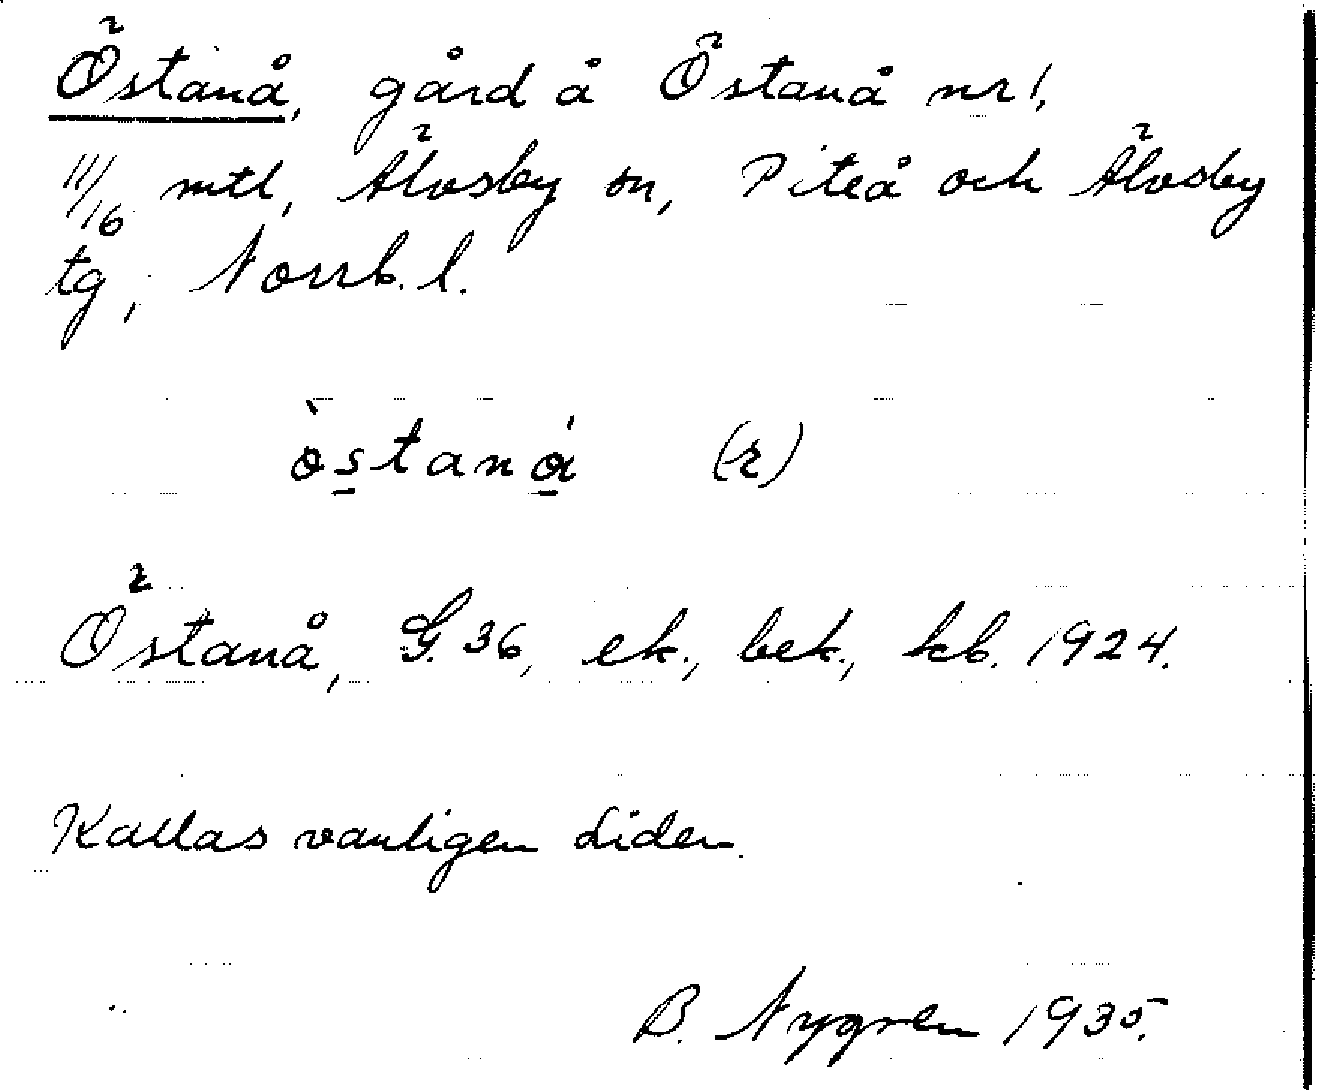 Östanå, gård å Östanå nr 1,
11/16 mtl, Älvsby sn, Piteå och Älvsby
tg, Norrb. l.
òstanǻ (-r)
Östanå, G. 36, ek., bek., kb. 1924.
Kallas vanligen Liden.
B. Nygren 1935.